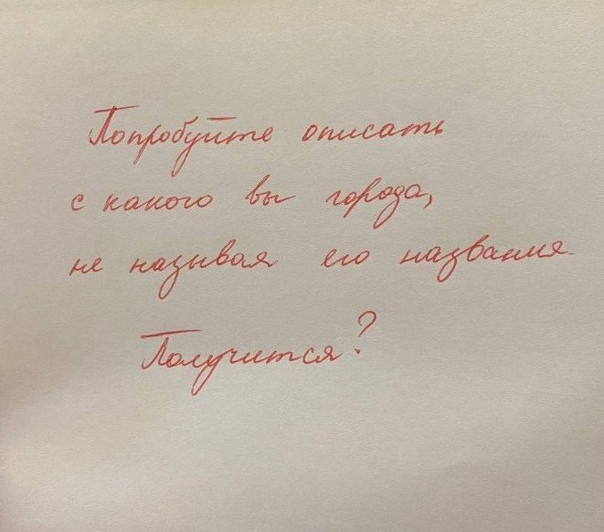 Попробуйте описать
с какого вы города,
не называя его названия.
Получится?